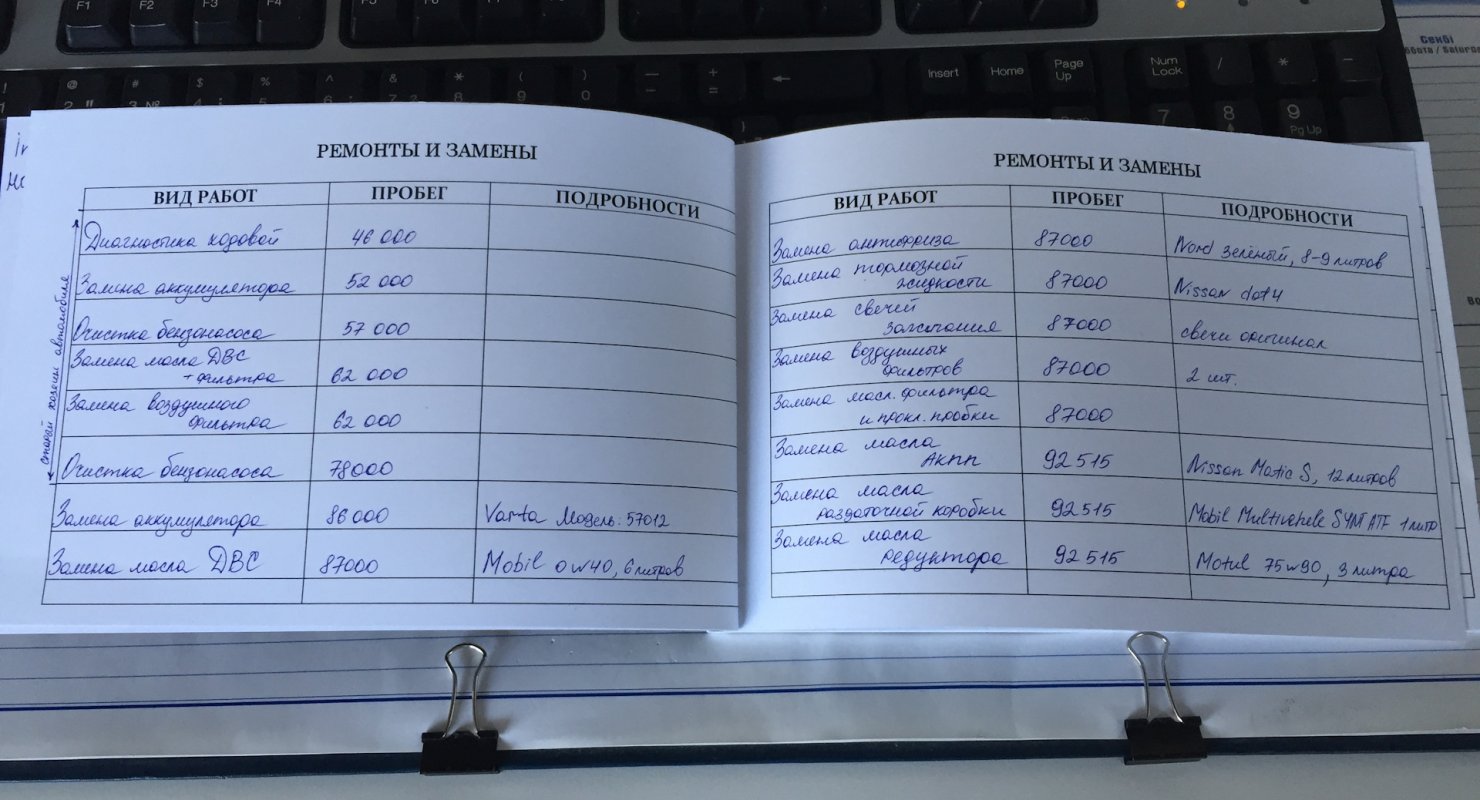 F1 F2 F3 F4
Insert Home Page Up Num Lock / * -
7 8 9 Pg Up
Сенбі
РЕМОНТЫ И ЗАМЕНЫ
ВИД РАБОТ ПРОБЕГ ПОДРОБНОСТИ
старый хозяин автомобиля
Диагностика ходовой 46 000
Замена аккумулятора 52 000
Очистка бензонасоса 57 000
Замена масла ДВС
+ фильтра 62 000
Замена воздушного
фильтра 62 000
Очистка бензонасоса 78000
Замена аккумулятора 86 000 Varta Модель: 57012
Замена масла ДВС 87000 Mobil 0w40, 6 литров
РЕМОНТЫ И ЗАМЕНЫ
ВИД РАБОТ ПРОБЕГ ПОДРОБНОСТИ
Замена антифриза 87000 Nord зелёный, 8-9 литров
Замена тормозной
жидкости 87000 Nissan dot4
Замена свечей
зажигания 87000 свечи оригинал
Замена воздушных
фильтров 87000 2 шт.
Замена масл. фильтра
и прокл. пробки 87000
Замена масла
АКПП 92 515 Nissan Matic S, 12 литров
Замена масла
раздаточной коробки 92515 Mobil Multivehicle SYNT ATF 1 литр
Замена масла
редуктора 92 515 Motul 75w90, 3 литра